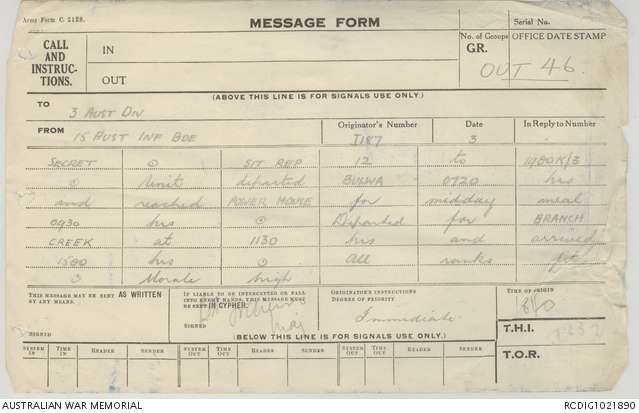 Army Form C. 2128.
MESSAGE FORM
Serial No.
CALL AND INSTRUC-TIONS.
IN
OUT
No. of Groups
GR.
OFFICE DATE STAMP
OUT 46
(ABOVE THIS LINE IS FOR SIGNALS USE ONLY.)
TO 3 AUST DIV
FROM 15 AUST INF BDE
Originator's Number I187
Date 3
In Reply to Number
SECRET ⊙ SIT REP 12 to 1400K/3
⊙ Unit departed BULWA 0720 hrs
and reached POWER HOUSE for midday meal
0930 hrs ⊙ Departed for BRANCH
CREEK at 1130 hrs and arrived
1500 hrs ⊙ All ranks fit
⊙ Morale high
THIS MESSAGE MAY BE SENT AS WRITTEN BY ANY MEANS.
SIGNED
IF LIABLE TO BE INTERCEPTED OR FALL INTO ENEMY HANDS, THIS MESSAGE MUST BE SENT IN CYPHER.
SIGNED Maj
ORIGINATOR'S INSTRUCTIONS
DEGREE OF PRIORITY
Immediate
TIME OF ORIGIN
T.H.I.
T.O.R.
(BELOW THIS LINE IS FOR SIGNALS USE ONLY.)
SYSTEM IN TIME IN READER SENDER SYSTEM OUT TIME OUT READER SENDER SYSTEM OUT TIME OUT READER SENDER
AUSTRALIAN WAR MEMORIAL
RCDIG1021890